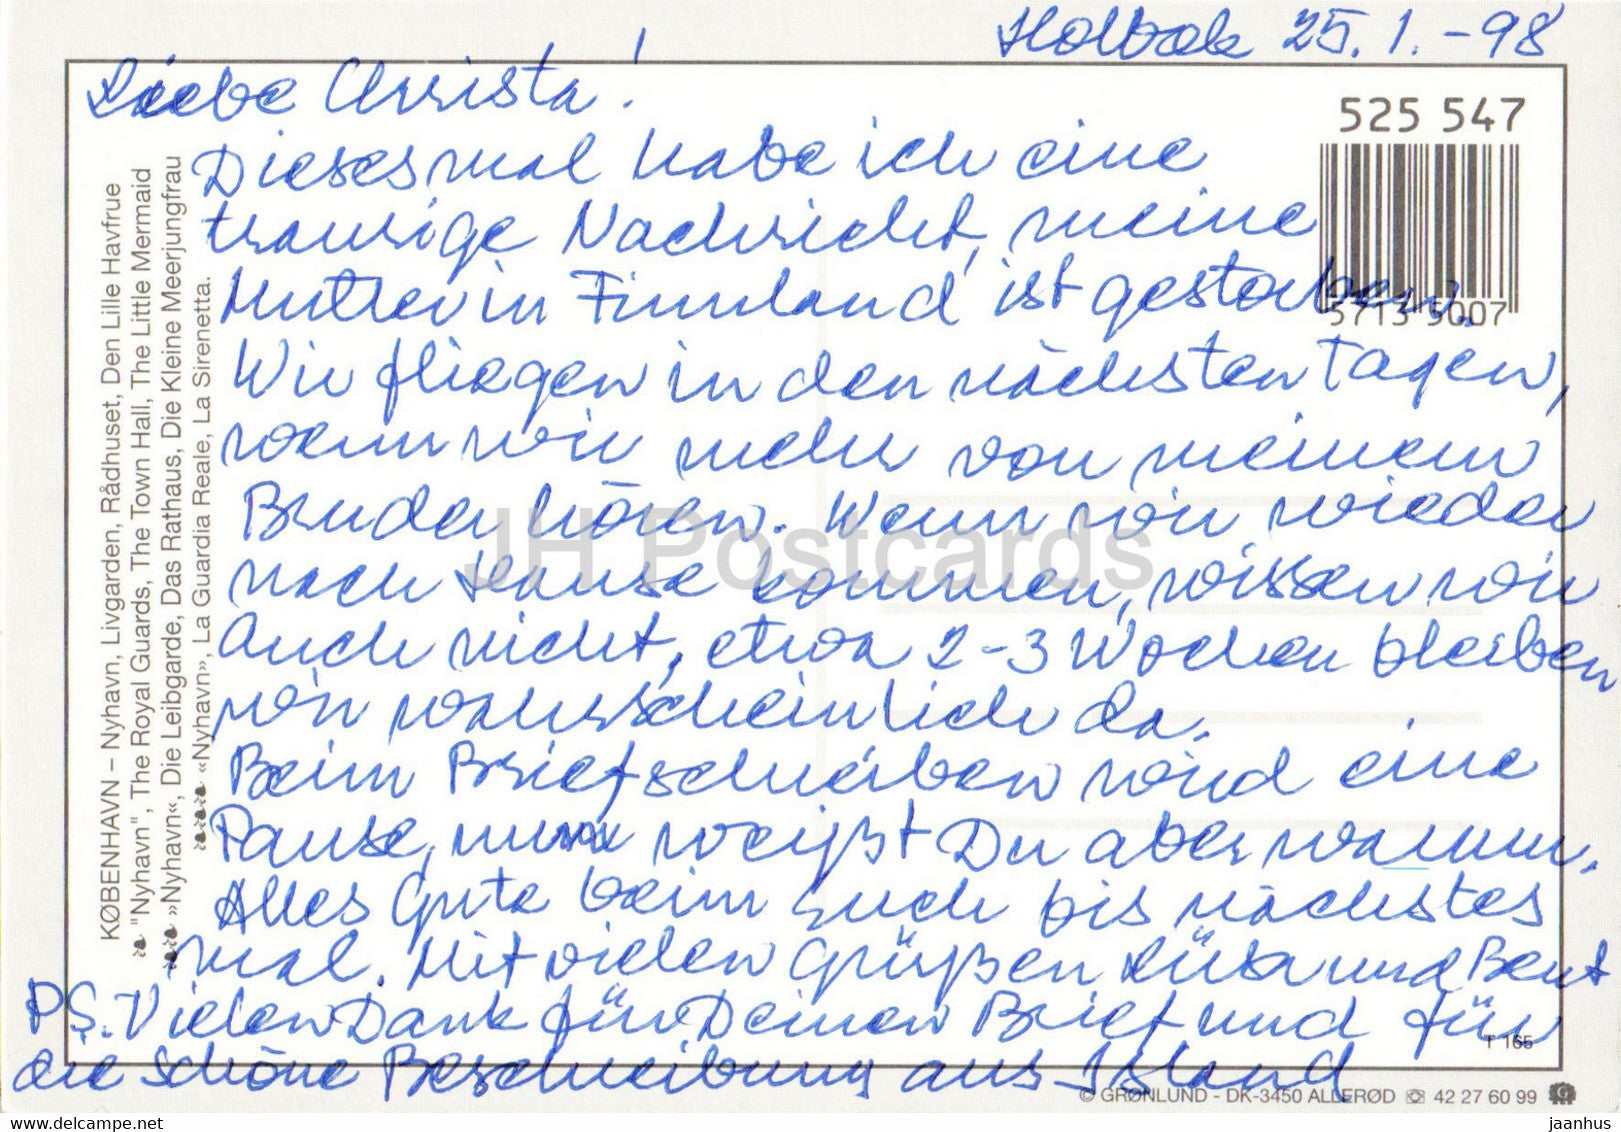 Holbæk 25.1.-98
Liebe Christa!
Diesesmal habe ich eine
traurige Nachricht, meine
Mutter in Finnland ist gestorben.
Wir fliegen in den nächsten Tagen,
wenn wir mehr von meinem
Bruder hören. Wenn wir wieder
nach Hause kommen, wissen wir
auch nicht, etwa 2-3 Wochen bleiben
wir wahrscheinlich da.
Beim Briefschreiben wird eine
Pause, nun weißt Du aber warum.
Alles Gute beim Euch bis nächstes
mal. Mit vielen Grüßen Lüba und Bent
PS. Vielen Dank für Deinen Brief und für
die schöne Beschreibung aus Island
KØBENHAVN – Nyhavn, Livgarden, Rådhuset, Den Lille Havfrue
"Nyhavn", The Royal Guards, The Town Hall, The Little Mermaid
»Nyhavn«, Die Leibgarde, Das Rathaus, Die Kleine Meerjungfrau
«Nyhavn», La Guardia Reale, La Sirenetta.
525 547
5713 5007
JH Postcards
T 165
© GRØNLUND - DK-3450 ALLERØD ☏ 42 27 60 99
www.delcampe.net
jaanhus